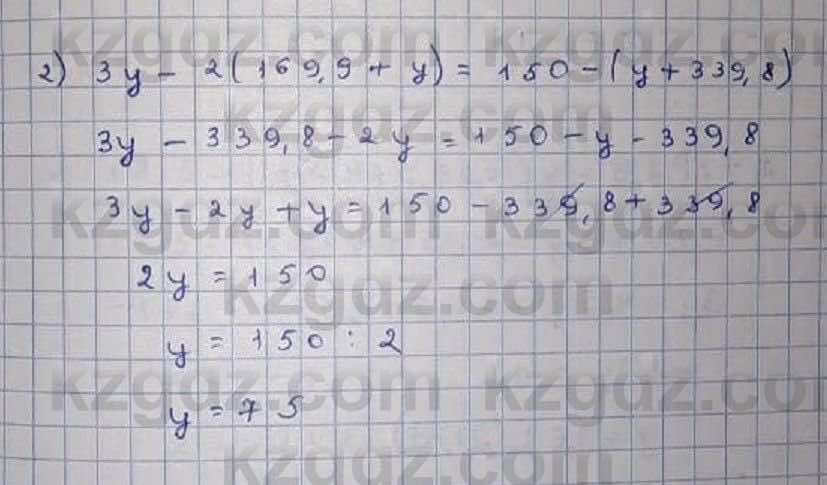 2) 3y - 2(169,9 + y) = 150 - (y + 339,8)
3y - 339,8 - 2y = 150 - y - 339,8
3y - 2y + y = 150 - 339,8 + 339,8
2y = 150
y = 150 : 2
y = 75
kzgdz.com kzgdz.com
kzgdz.com
kzgdz.com kzgdz.com
kzgdz.com
kzgdz.com kzgdz.com
kzgdz.com